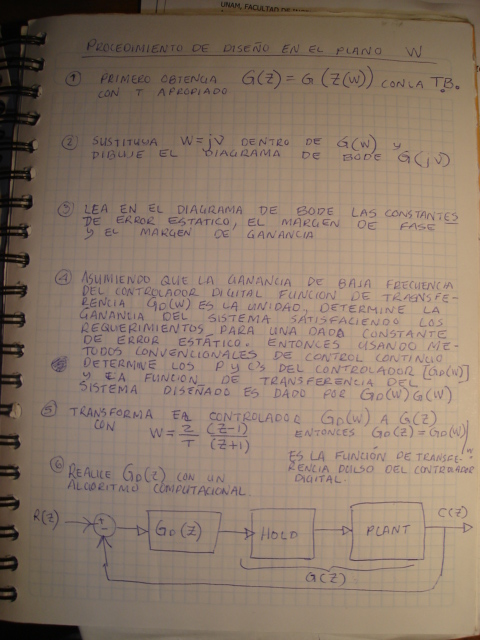 UNAM, FACULTAD DE
PROCEDIMIENTO DE DISEÑO EN EL PLANO W
① PRIMERO OBTENGA G(Z) = G(Z(W)) CON LA T.B.
CON T APROPIADO
② SUSTITUIA W=jV DENTRO DE G(W) y
DIBUJE EL DIAGRAMA DE BODE G(jV)
③ LEA EN EL DIAGRAMA DE BODE LAS CONSTANTES
DE ERROR ESTATICO, EL MARGEN DE FASE
y EL MARGEN DE GANANCIA
④ ASUMIENDO QUE LA GANANCIA DE BAJA FRECUENCIA
DEL CONTROLADOR DIGITAL FUNCION DE TRANSFE-
RENCIA GD(W) ES LA UNIDAD, DETERMINE LA
GANANCIA DEL SISTEMA SATISFACIENDO LOS
REQUERIMIENTOS PARA UNA DADA CONSTANTE
DE ERROR ESTÁTICO. ENTONCES USANDO MÉ-
TODOS CONVENCIONALES DE CONTROL CONTINUO
DETERMINE LOS P y C'S DEL CONTROLADOR [GD(W)]
y LA FUNCION DE TRANSFERENCIA DEL
SISTEMA DISEÑADO ES DADO POR GD(W) G(W)
⑤ TRANSFORMA EL CONTROLADOR GD(W) A G(Z)
CON W = 2/T (Z-1)/(Z+1) ENTONCES GD(Z) = GD(W)|w
ES LA FUNCIÓN DE TRANSFE-
RENCIA PULSO DEL CONTROLADOR
DIGITAL.
⑥ REALICE GD(Z) CON UN
ALGORITMO COMPUTACIONAL.
R(Z) GD(Z) HOLD PLANT C(Z)
G(Z)